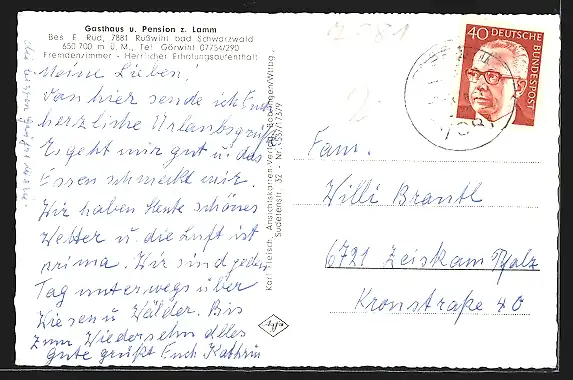 Gasthaus u. Pension z. Lamm
Bes. E. Rud, 7881 Rüßwihl bad Schwarzwald
650-700 m ü. M., Tel. Görwihl 07754/290
Fremdenzimmer - Herrlicher Erholungsaufenthalt
Meine Lieben!
Von hier sende ich Euch
herzliche Urlaubsgrüße
Es geht mir gut u. das
Essen schmeckt mir.
Wir haben heute schönes
Wetter u. die Luft ist
prima. Wir sind jeden
Tag unterwegs über
Wiesen u. Wälder. Bis
zum Wiedersehn alles
gute grüßt Euch Kathrin
Karl Fleisch, Ansichtskarten-Verlag
Sudetenstr. 32 - Nr.
7881
40
DEUTSCHE
BUNDESPOST
Fam.
Willi Brantl
6721 Zeiskam Pfalz
Kronstraße 40